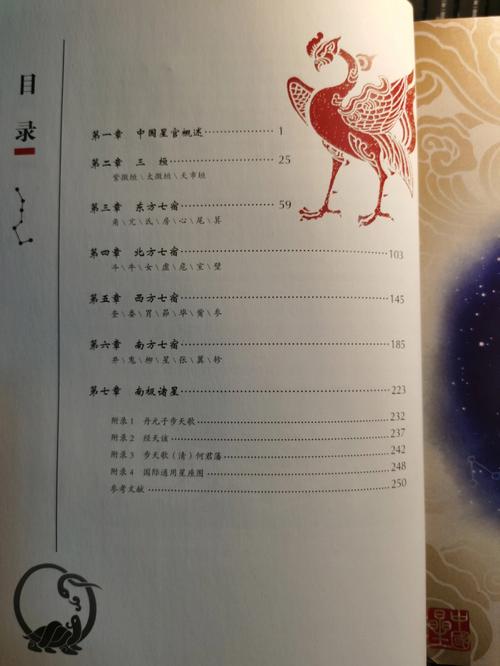 目录
第一章 中国星官概述 1
第二章 三垣 25
紫微垣\太微垣\天市垣
第三章 东方七宿 59
角\亢\氐\房\心\尾\箕
第四章 北方七宿 103
斗\牛\女\虚\危\室\壁
第五章 西方七宿 145
奎\娄\胃\昴\毕\觜\参
第六章 南方七宿 185
井\鬼\柳\星\张\翼\轸
第七章 南极诸星 223
附录1 丹元子步天歌 232
附录2 经天该 237
附录3 步天歌（清）何君藩 242
附录4 国际通用星座图 248
参考文献 250